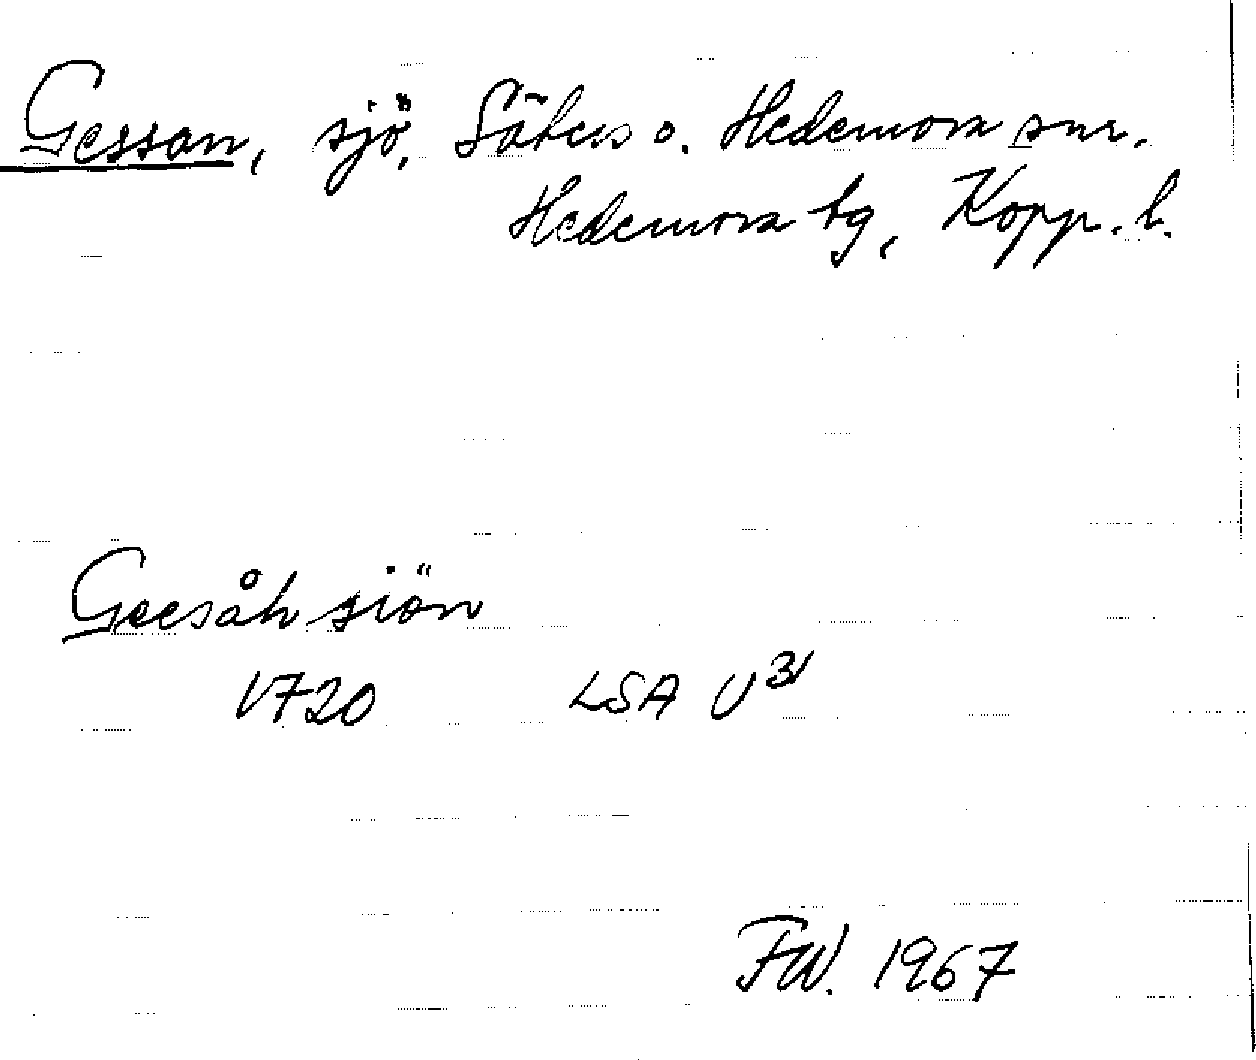 Gessan, sjö, Säters o. Hedemora snr.
Hedemora tg, Kopp. l.
Geesåh siön
1720 LSA U 31
F.W. 1967